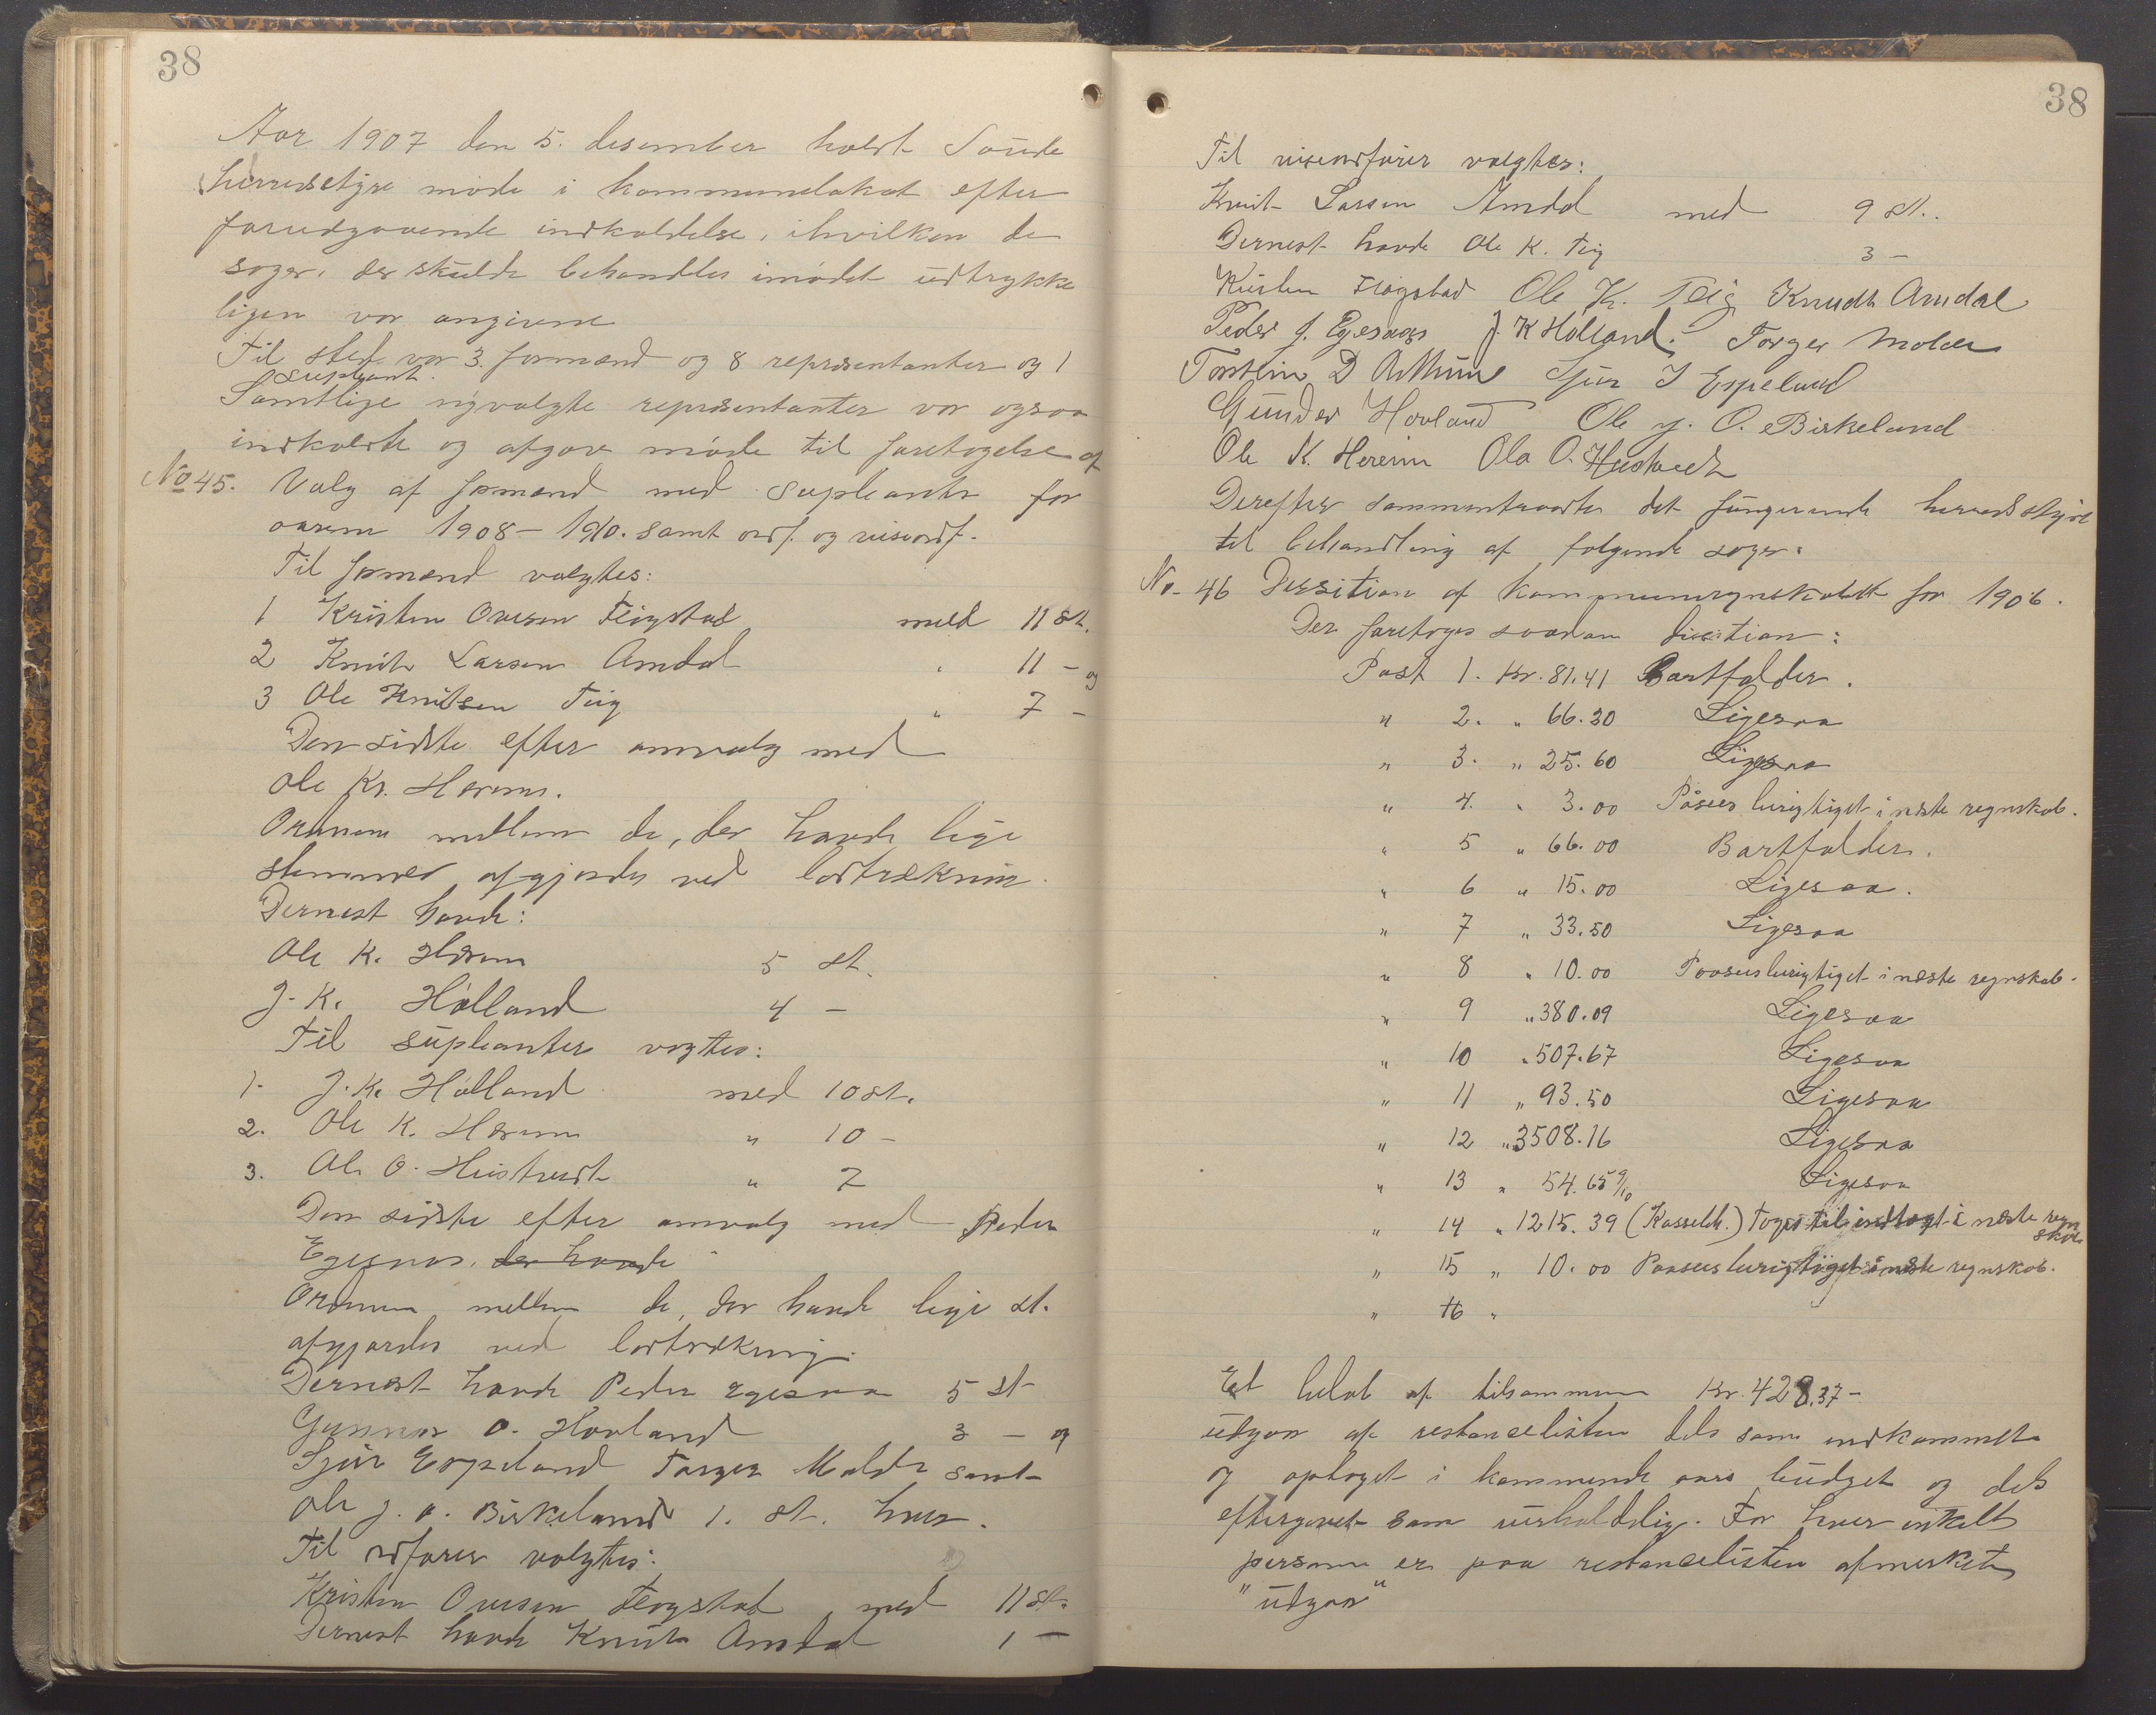 38
Aar 1907 den 5. desember holdt Saude
herredsstyre møde i kommunelokal efter
forudgaaende indkaldelse, ihvilken de
sager, der skulde behandles imødet udtrykke
ligen var angivene
Til sted var 3 formænd og 8 repræsentanter og 1
supleant.
Samtlige nyvalgte repræsentanter var ogsaa
indkaldte og afgav møde til foretagelse af
No 45. Valg af formænd med supleanter for
aarene 1908 – 1910. samt ordf. og viseordf.
Til formænd valgtes:
1 Kristen Ovesen Fløgstad med 11 st.
2 Knut Larsen Amdal " 11 – og
3 Ole Knutsen Teig " 7 –
Den sidste efter omvalg med
Ole Kr. Hereim.
Ordenen mellem de, der havde lige
stemmer afgjordes ved lodtrækning.
Dernest havde:
Ole K. Hereim 5 st.
J. K. Hølland 4 –
Til supleanter valgtes:
1. J. K. Hølland med 10 st.
2. Ole K. Hereim " 10 –
3. Ole O. Hustvedt " 7
Den sidste efter omvalg med Peder
Egesnes, der havde
Ordenen mellem de, der havde lige st.
afgjordes ved lodtrækning.
Dernæst havde Peder Egesnæs 5 st
Gunnar O. Hovland 3 – og
Sjur Espeland Torger Molde samt
Ole J. O. Birkeland 1. st. hver.
Til ordfører valgtes:
Kristen Ovesen Fløgstad med 11 st.
Dernest havde Knut Amdal 1 –
38
Til viseordfører valgtes:
Knut Larsen Amdal med 9 st.
Dernest havde Ole K. Teig 3 –
Kristen Fløgstad Ole K. Teig Knudt Amdal
Peder J. Egesnæs J. K Hølland. Torger Molde
Torstein D Arthun Sjur J Espeland
Gunder Hovland Ole J. O. Birkeland
Ole K. Hereim Ola O. Hustvedt
Derefter sammentraadte det fungerende herredsstyre
til behandling af følgende sager:
No. 46 Desition af kommuneregnskabet for 1906.
Der foretoges saadan desition:
Post 1. Kr. 81.41 Bortfalder.
" 2. " 66.20 Ligesaa
" 3. " 25.60 Ligesaa
" 4. " 3.00 Påsees berigtiget i næste regnskab.
" 5 " 66.00 Bortfalder.
" 6 " 15.00 Ligesaa.
" 7 " 33.50 Ligesaa
" 8 " 10.00 Paasees berigtiget i næste regnskab.
" 9 " 380.09 Ligesaa
" 10 " 507.67 Ligesaa
" 11 " 93.50 Ligesaa
" 12 " 3508.16 Ligesaa
" 13 " 54.65 9/10 Ligesaa
" 14 " 1215.39 (Kassebh.) Tages til indtægt i næste regn
skab
" 15 " 10.00 Paasees berigtiget i næste regnskab.
" 16 "
Et beløb af tilsammen Kr. 428.37 –
udgaar af restanselisten dels som indkommet
og optaget i kommende aars budget og dels
eftergivet som uerholdelig. For hver enkelt
person er paa restanselisten afmerket
"udgaar"